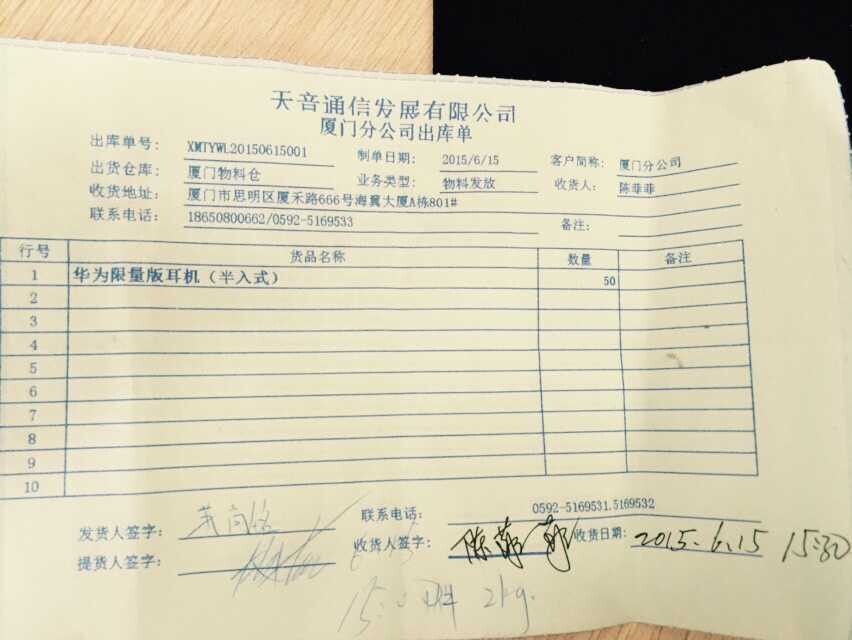 天音通信发展有限公司
厦门分公司出库单
出库单号: XMTYWL20150615001 制单日期: 2015/6/15 客户简称: 厦门分公司
出货仓库: 厦门物料仓 业务类型: 物料发放 收货人: 陈菲菲
收货地址: 厦门市思明区厦禾路666号海翼大厦A栋801#
联系电话: 18650800662/0592-5169533 备注:
行号 货品名称 数量 备注
1 华为限量版耳机（半入式） 50
2
3
4
5
6
7
8
9
10
联系电话: 0592-5169531.5169532
发货人签字: 收货人签字: 陈菲菲 收货日期: 2015.6.15 15:30
提货人签字:
2kg.